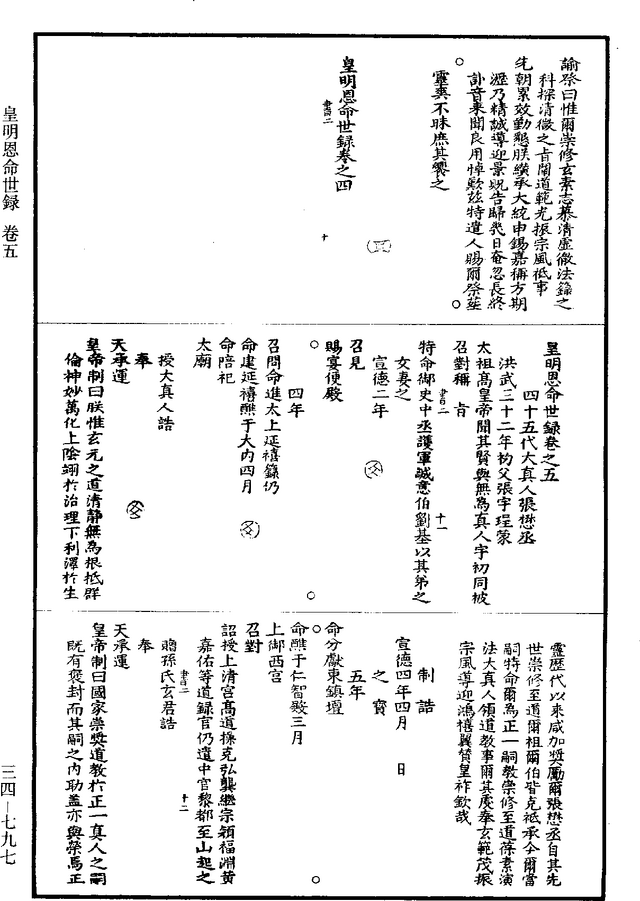 諭祭曰惟爾崇修玄素志慕清虛徹法籙之
科探清微之旨闡道範光振宗風祗事
先朝累效勤懇朕纘承大統申錫嘉稱方期
瀝乃精誠導迎景貺告歸幾日奄忽長終
訃音來聞良用悼歎玆特遣人賜爾祭葬
靈爽不昧庶其饗之
皇明恩命世録卷之四
書四二
十
皇明恩命世録卷之五
四十五代大真人張懋丞
洪武三十二年初父張字理蒙
太祖高皇帝聞其賢與無為真人字初同被
召對稱旨
書四二
十一
特命御史中丞護軍誠意伯劉基以其弟之
女妻之
宣德二年
召見
賜宴便殿
四年
召問命進太上延禧籙仍
命建延禧醮于大内四月
命陪祀
太廟
授大真人誥
奉
天承運
皇帝制曰朕惟玄元之道清靜無為根柢群
倫神妙萬化上陰翊於治理下利澤於生
靈歷代以來咸加奬勵爾張懋丞自其先
世崇修至道爾祖爾伯皆克祗承今爾當
嗣特命爾為正一嗣教崇修至道葆素演
法大真人領道教事爾其慶奉玄範茂振
宗風導迎鴻禧翼贊皇祚欽哉
制誥
宣德四年四月 日
之寶
五年
命分獻東鎮壇
命醮于仁智殿三月
上御西宮
召對
詔授上清宮高道操克弘龔繼宗穎福淵黄
嘉佑等道録官仍遣中官黎都至山起之
書四二
十二
贈孫氏玄君誥
奉
天承運
皇帝制曰國家崇奬道教於正一真人之嗣
既有褒封而其嗣之内助盖亦與榮焉正
皇明恩命世録 卷五
三四－七九七